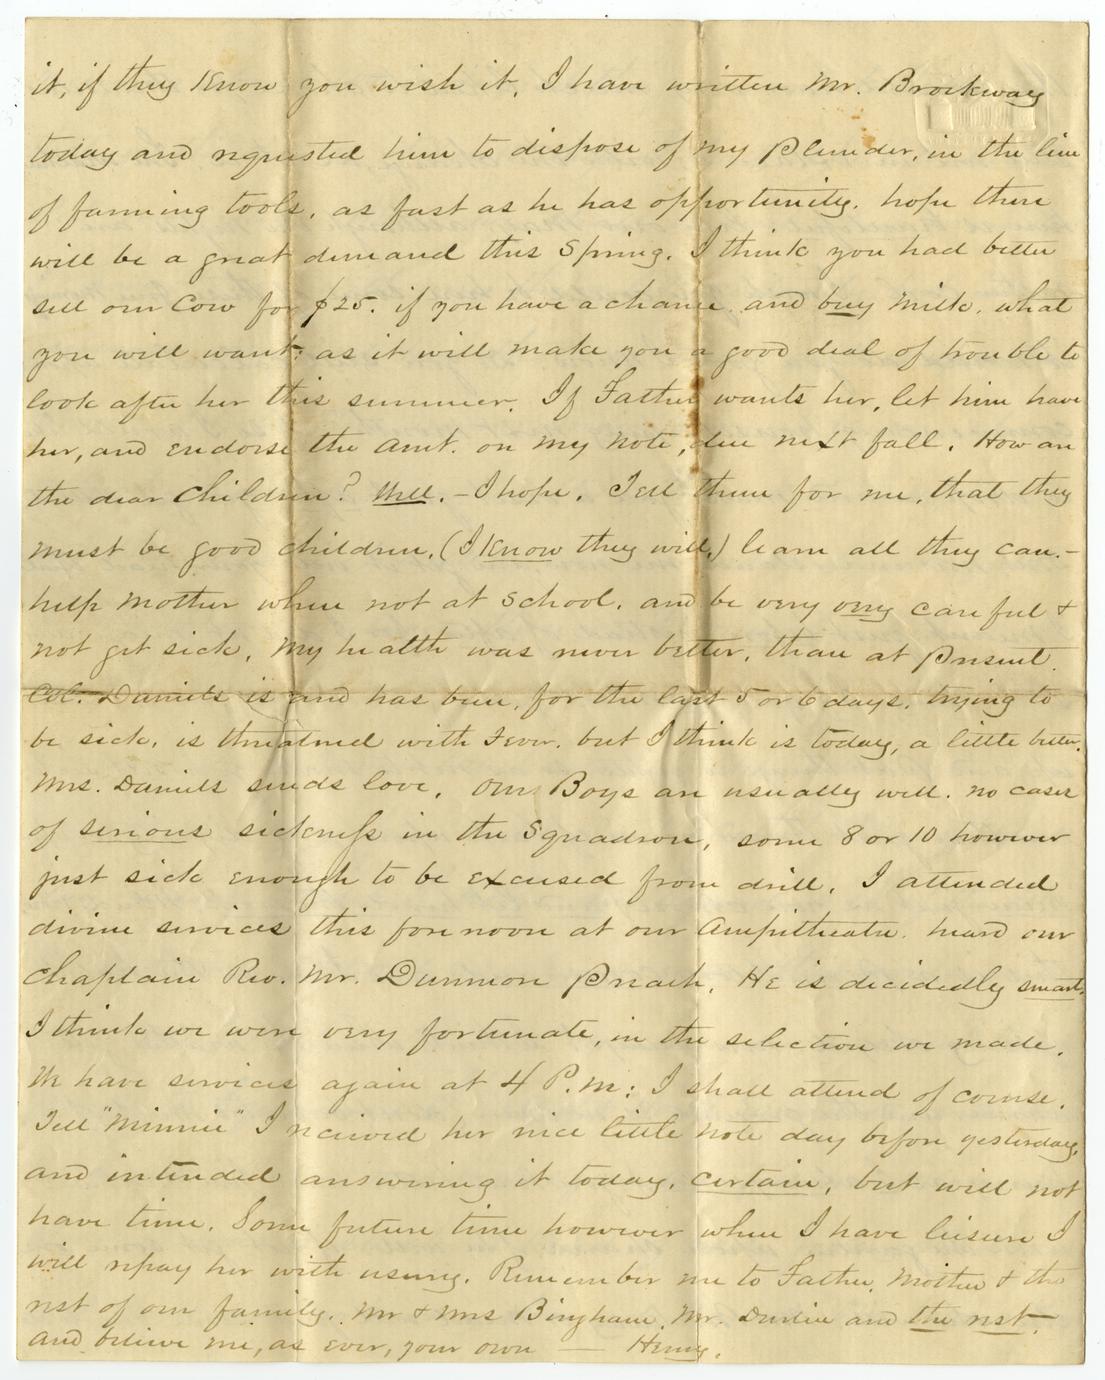 it, if they Know you wish it. I have written Mr. Brockway
today and requested him to dispose of my Plunder, in the line
of farming tools, as fast as he has opportunity. hope there
will be a great demand this Spring. I think you had better
sell our Cow for $25. if you have a chance and buy Milk. what
you will want: as it will make you a good deal of trouble to
look after her this summer. If Father wants her, let him have
her, and endorse the amt. on my Note, due next fall. How are
the dear children? Well. - I hope. Tell them for me, that they
must be good children, (I Know they will,) learn all they can. -
help Mother when not at School. and be very very careful &
not get sick. My health was never better, than at Present.
Col. Daniels is and has been, for the last 5 or 6 days. trying to
be sick, is threatned with Fever. but I think is today, a little better.
Mrs. Daniels sends love. Our Boys are usually well. no cases
of serious sickness in the Squadron, some 8 or 10 however
just sick enough to be excused from drill. I attended
divine services this forenoon at our Ampitheatre. heard our
Chaplain Rev. Mr. Dunmore Preach. He is decidedly smart.
I think we were very fortunate, in the selection we made.
We have services again at 4 P.M: I shall attend of course.
Tell "Minnie" I received her nice little Note day before yesterday,
and intended answering it today. certain, but will not
have time. Some future time however when I have leisure I
will repay her with usury. Remember me to Father, Mother & the
rest of our family. Mr & Mrs Bingham. Mr. and the rest.
and believe me, as ever, your own — Henry.